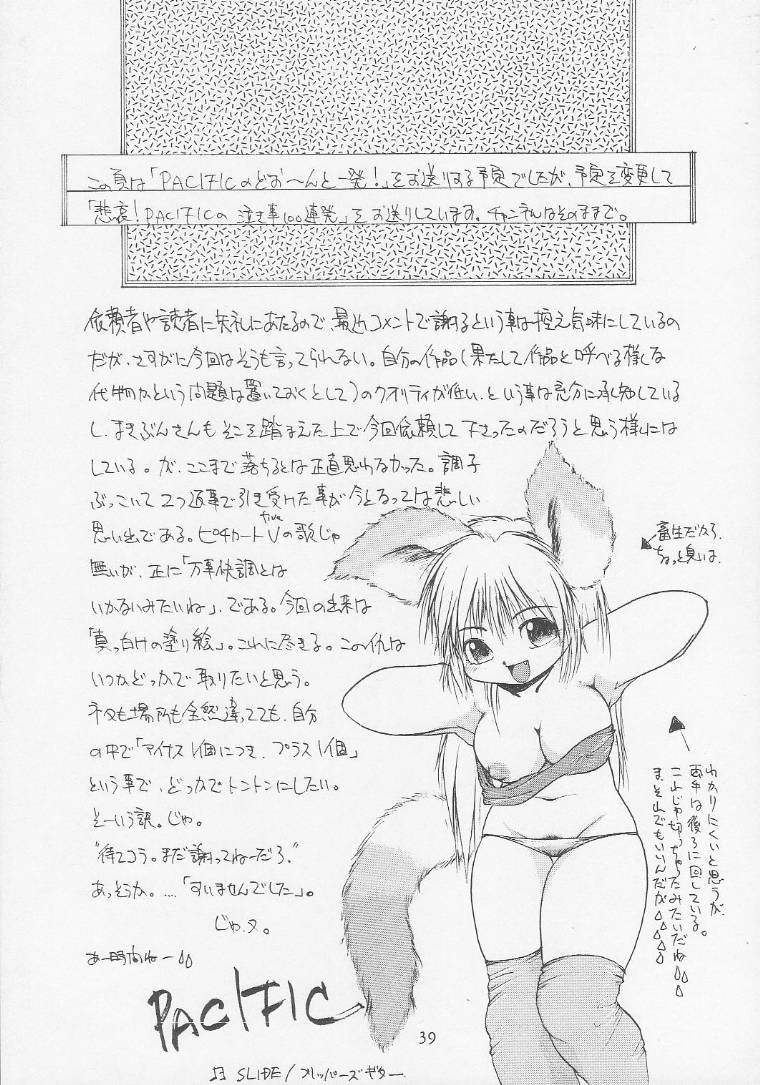 この頁は「PACIFICのどお〜んと一発!」をお送りする予定でしたが、予定を変更して
「悲哀!PACIFICの泣き事100連発」をお送りしています。チャンネルはそのままで。
依頼者や読者に失礼にあたるので、最近コメントで謝るという事は控え気味にしているの
だが、さすがに今回はそうも言ってられない。自分の作品(果たして作品と呼べる様な
代物かという問題は置いておくとして)のクオリティが低い、という事は充分に承知している
し、まきぶんさんもそこを踏まえた上で今回依頼して下さったのだろうと思う様には
している。が、ここまで落ちるとは正直思わなかった。調子
ぶっこいて2つ返事で引き受けた事が今となっては悲しい
思い出である。ピチカートV(five)の歌じゃ
無いが、正に「万事快調とは
いかないみたいね」、である。今回の出来は
「真っ白けの塗り絵」。これに尽きる。この仇は
いつかどっかで取りたいと思う。
ネタも場所も全然違ってても、自分
の中で「マイナス1個につき、プラス1個」
という事で、どっかでトントンにしたい。
そーいう訳。じゃ。
"待てコラ。まだ謝ってねーだろ"
あっそうか。…「すいませんでした」。
じゃヌ。
あー時間ねー
PACIFIC
畜生だから
ちょっと臭いは。
わかりにくいと思うが、
両手は後ろに回している。
これじゃ切っちゃったみたいだね
ま、それでもいいんだが
39
♫ SLIDE/フリッパーズギター